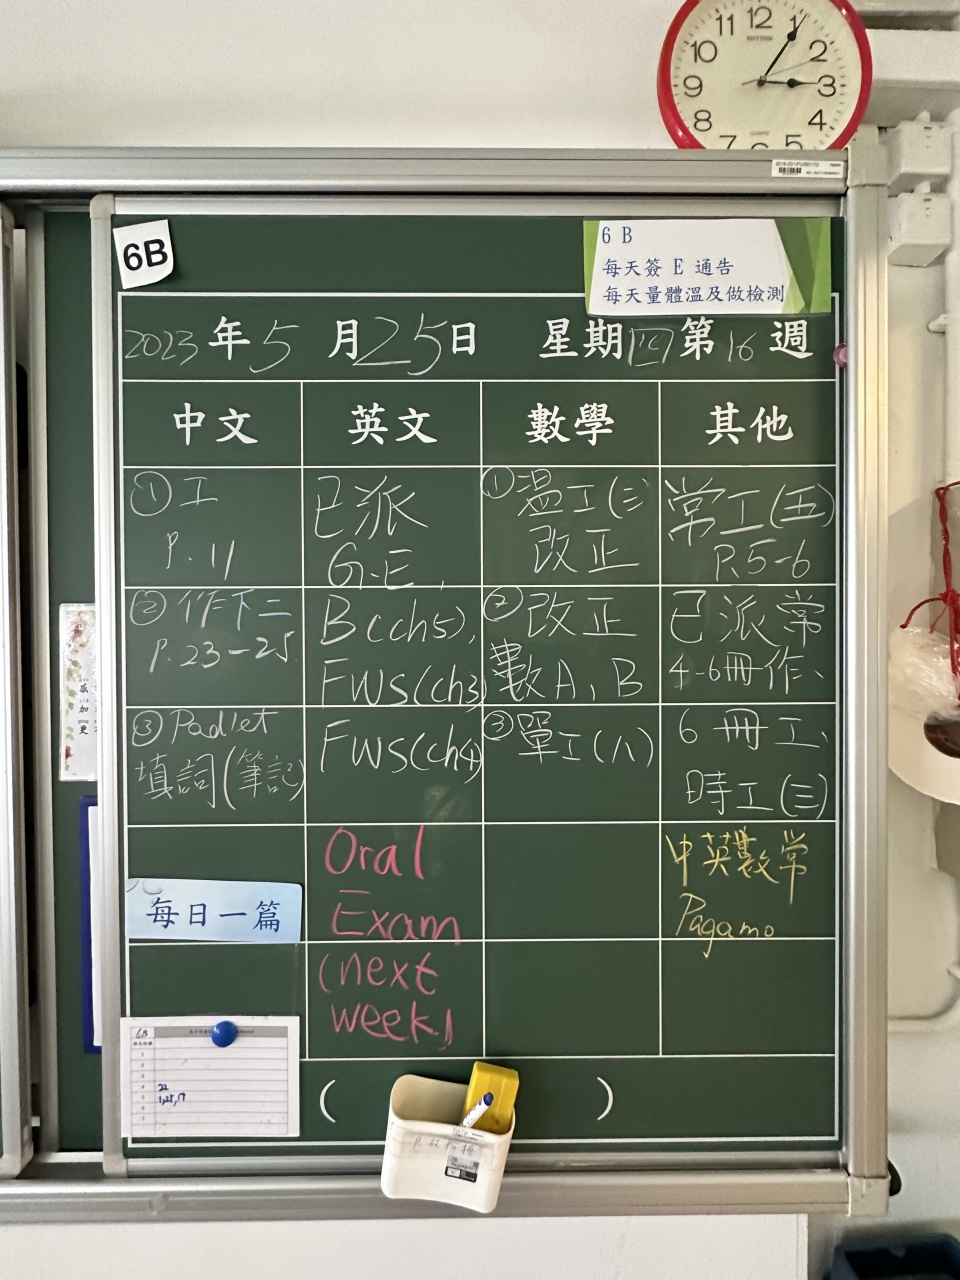 11 12 1
10 2
9 3
8 4
7 6 5
RHYTHM
QUARTZ
6B
6 B
每天簽 E 通告
每天量體溫及做檢測
2023 年 5 月 25 日 星期四 第 16 週
中文 英文 數學 其他
① 工
P. 11
② 作下二
P. 23-25
③ Padlet
填詞(筆記)
每日一篇
已派
G.E.
B(ch5),
FWS(ch3)
FWS(ch4)
Oral
Exam
(next
week)
① 溫工(三)
改正
② 改正
數A、B
③ 單工(八)
常工(五)
P.5-6
已派常
4-6冊作、
6 冊工、
時工(三)
中英數常
Pagamo
6B
1
2
3
22
1,25,17
( )
感
加
更